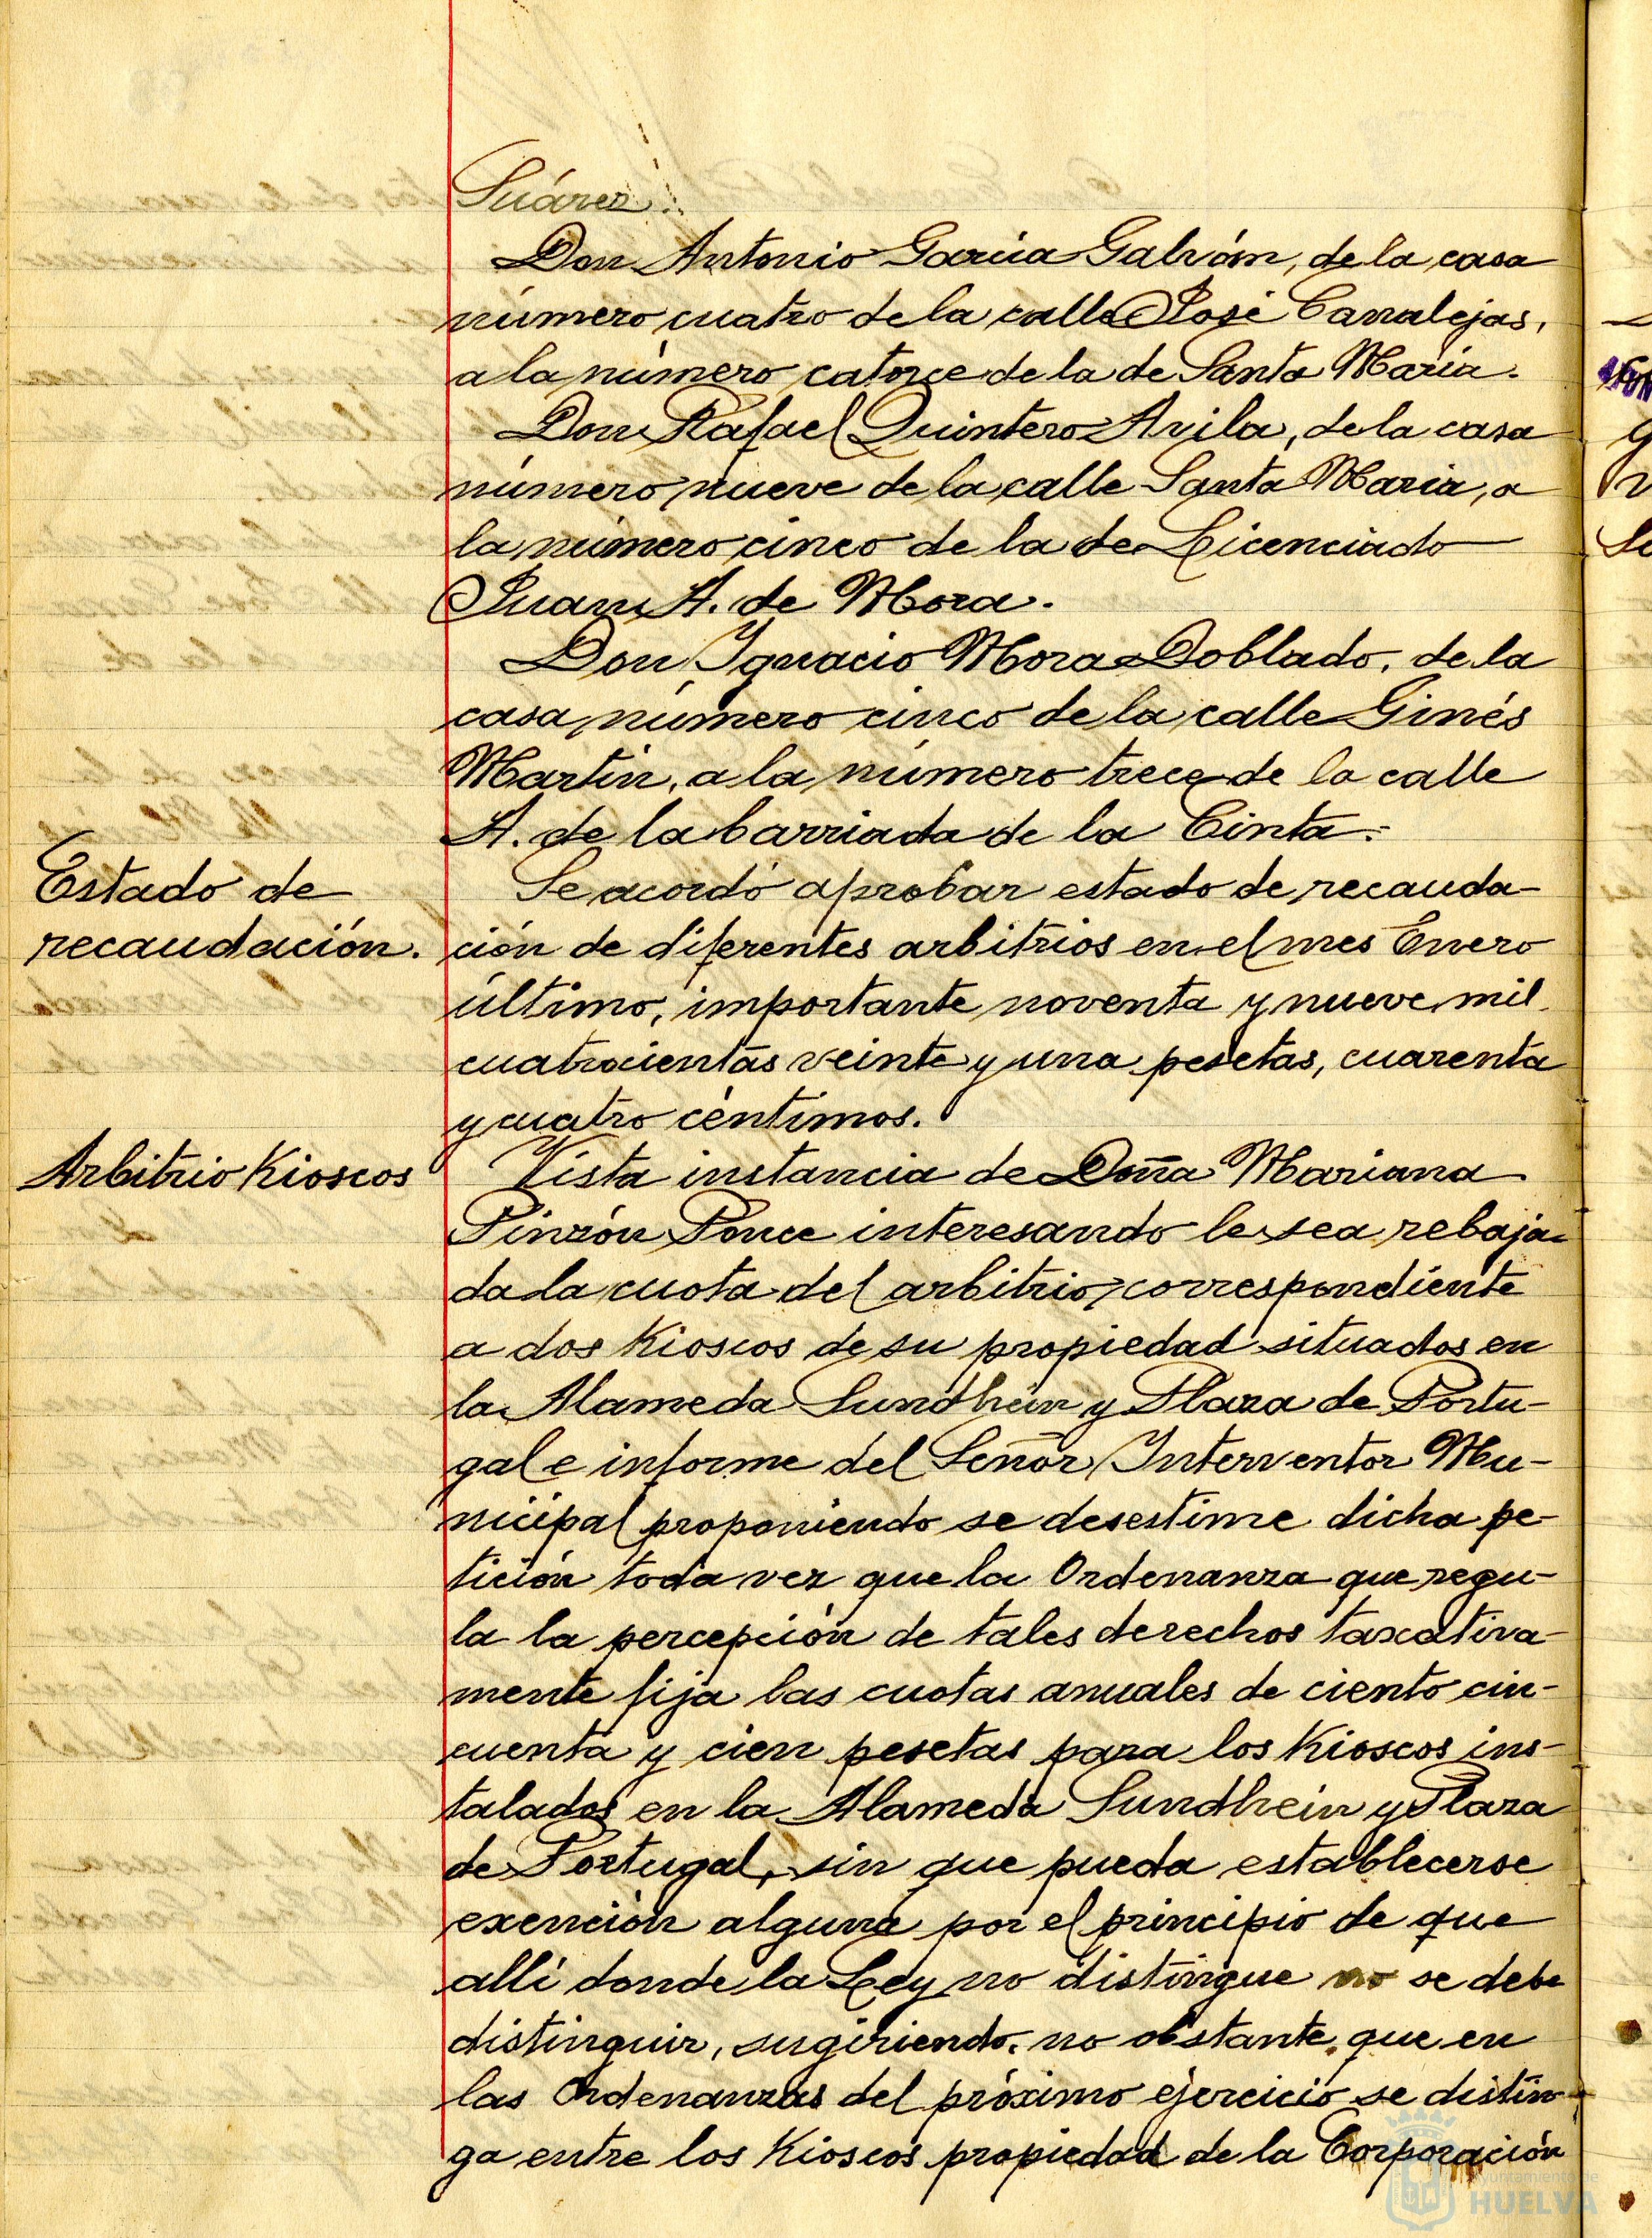 Suárez.
Don Antonio García Galván, de la casa
número cuatro de la calle José Canalejas,
a la número catorce de la de Santa María.
Don Rafael Quintero Avila, de la casa
número nueve de la calle Santa María, a
la número cinco de la de Licenciado
Juan A. de Mora.
Don Ignacio Mora Doblado, de la
casa número cinco de la calle Ginés
Martín, a la número trece de la calle
A. de la barriada de la Cinta.
Estado de
recaudación.
Se acordó aprobar estado de recauda-
ción de diferentes arbitrios en el mes Enero
último, importante noventa y nueve mil
cuatrocientas veinte y una pesetas, cuarenta
y cuatro céntimos.
Arbitrio Kioscos
Vista instancia de Doña Mariana
Pinzón Ponce interesando le sea rebaja-
da la cuota del arbitrio correspondiente
a dos Kioscos de su propiedad situados en
la Alameda Sundhein y Plaza de Portu-
gal e informe del Señor Interventor Mu-
nicipal proponiendo se desestime dicha pe-
tición toda vez que la Ordenanza que regu-
la la percepción de tales derechos taxativa-
mente fija las cuotas anuales de ciento cin-
cuenta y cien pesetas para los Kioscos ins-
talados en la Alameda Sundhein y Plaza
de Portugal, sin que pueda establecerse
exención alguna por el principio de que
allí donde la Ley no distingue no se debe
distinguir, sugiriendo, no obstante, que en
las Ordenanzas del próximo ejercicio se distin-
ga entre los Kioscos propiedad de la Corporación
Ayuntamiento de
HUELVA